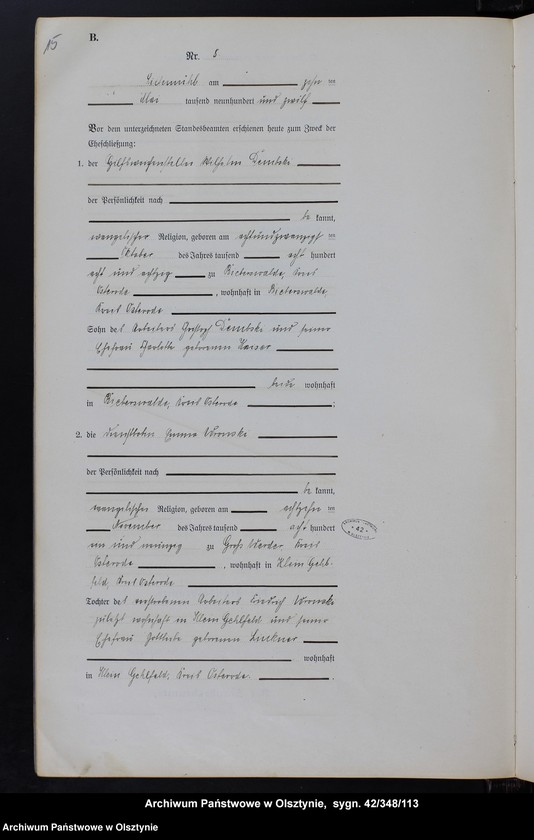 15
B.
Nr. 8
am zehn ten
Mai tausend neunhundert und zwölf
Vor dem unterzeichneten Standesbeamten erschienen heute zum Zweck der
Eheschließung:
1. der Hilfsweichensteller Wilhelm Dembske
der Persönlichkeit nach
be kannt,
evangelischer Religion, geboren am achtundzwanzigsten
Oktober des Jahres tausend acht hundert
acht und achtzig zu Bieberswalde, Kreis
Osterode, wohnhaft in Bieberswalde,
Kreis Osterode
Sohn des Arbeiters Dembske und seiner
Ehefrau Charlotte geborenen Kaiser
beide wohnhaft
in Bieberswalde, Kreis Osterode;
2. die Emma
der Persönlichkeit nach
be kannt,
evangelischer Religion, geboren am achtzehn ten
November des Jahres tausend acht hundert
ein und neunzig zu Groß Werder Kreis
Osterode, wohnhaft in Klein Gehl-
feld, Kreis Osterode
Tochter des verstorbenen Arbeiters Friedrich
zuletzt wohnhaft in Klein Gehlfeld und seiner
Ehefrau Gottliebe geborenen
wohnhaft
in Klein Gehlfeld, Kreis Osterode.
42
Archiwum Państwowe w Olsztynie, sygn. 42/348/113
Archiwum Państwowe w Olsztynie